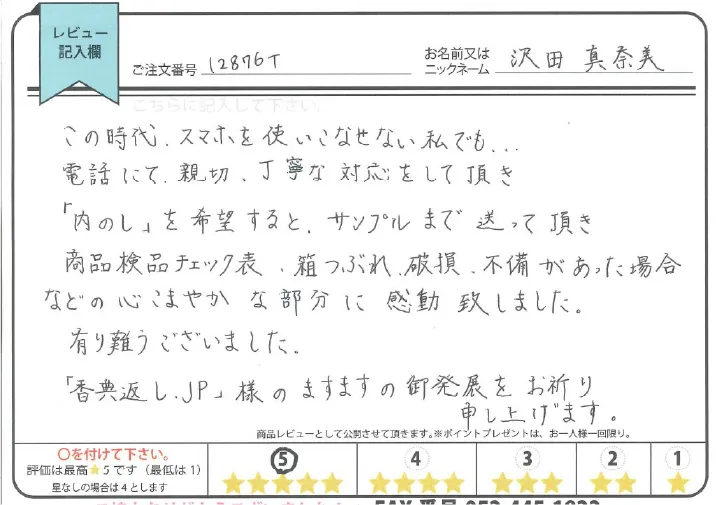 レビュー
記入欄
ご注文番号 12876T
お名前又は
ニックネーム 沢田 真奈美
こちらに記入して下さい。
この時代、スマホを使いこなせない私でも...
電話にて、親切、丁寧な対応をして頂き
「内のし」を希望すると、サンプルまで送って頂き
商品検品チェック表、箱つぶれ、破損、不備があった場合
などの心こまやかな部分に感動致しました。
有り難うございました。
「香典返し.JP」様のますますの御発展をお祈り
申し上げます。
商品レビューとして公開させて頂きます。※ポイントプレゼントは、お一人様一回限り。
〇を付けて下さい。
評価は最高★5です（最低は1）
星なしの場合は4とします
5 4 3 2 1
★★★★★ ★★★★ ★★★ ★★ ★